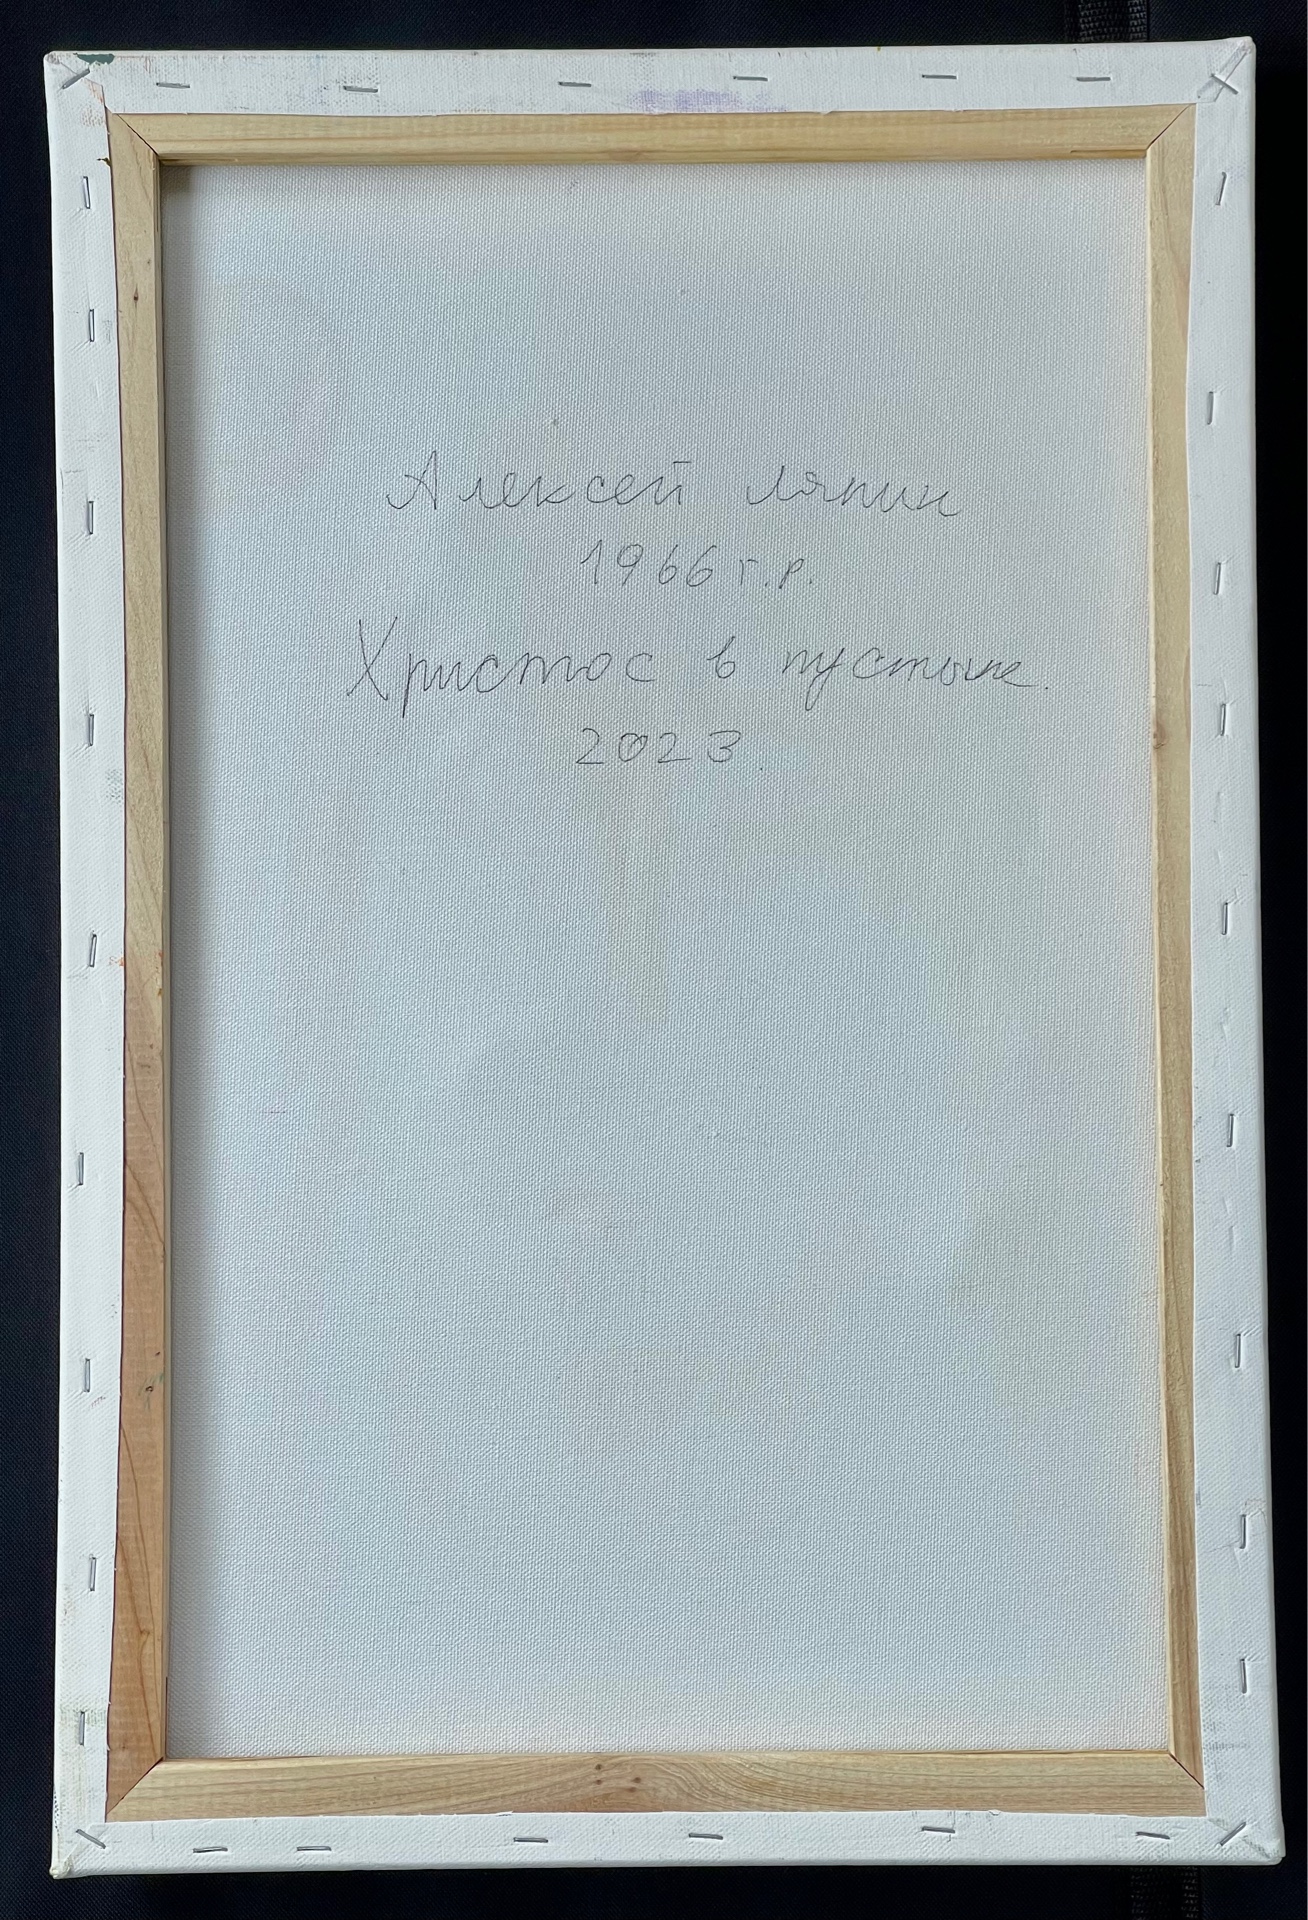 Алексей Ляпин
1966 г.р.
Христос в пустыне.
2023.